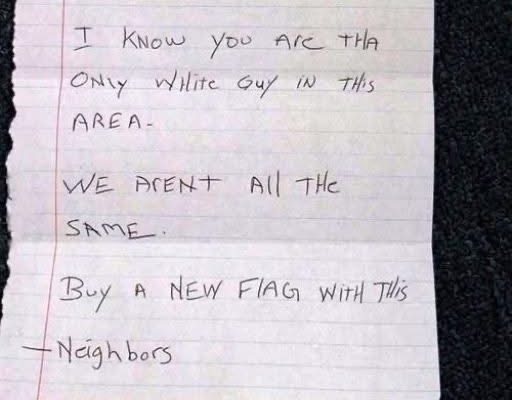 I KNOW YOU ARE THA
ONLY WHITE GUY IN THIS
AREA-
WE ARENT All THE
SAME.
BUY A NEW FLAG WITH THIS
-Neighbors